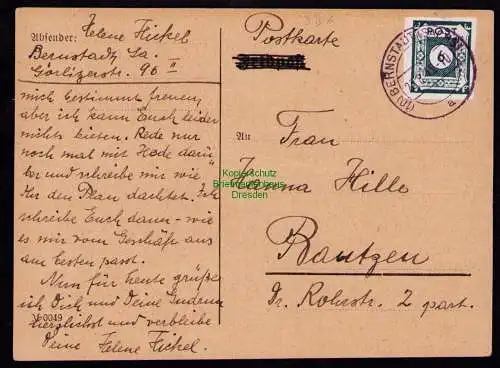 Absender: Helene Fickel
Bernstadt Sa.
Görlitzerstr. 96 II
mich bestimmt freuen,
aber ich kann Euch leider
nichts bieten. Rede nur
noch mal mit Hode darü-
ber und schreibe mir wie
Ihr den Plan dachtet. Ich
schreibe Euch dann - wie
es mir vom Geschäft aus
am besten passt.
Nun für heute grüße
ich Dich und Deine
herzlichst und verbleibe
Deine Helene Fickel.
M/0049
Postkarte
Feldpost
(10) BERNSTADT
a
6
An
Frau
Herma Hille
Bautzen
Dr. Rohrstr. 2 part.
Kopierschutz
Briefmarkenhaus
Dresden